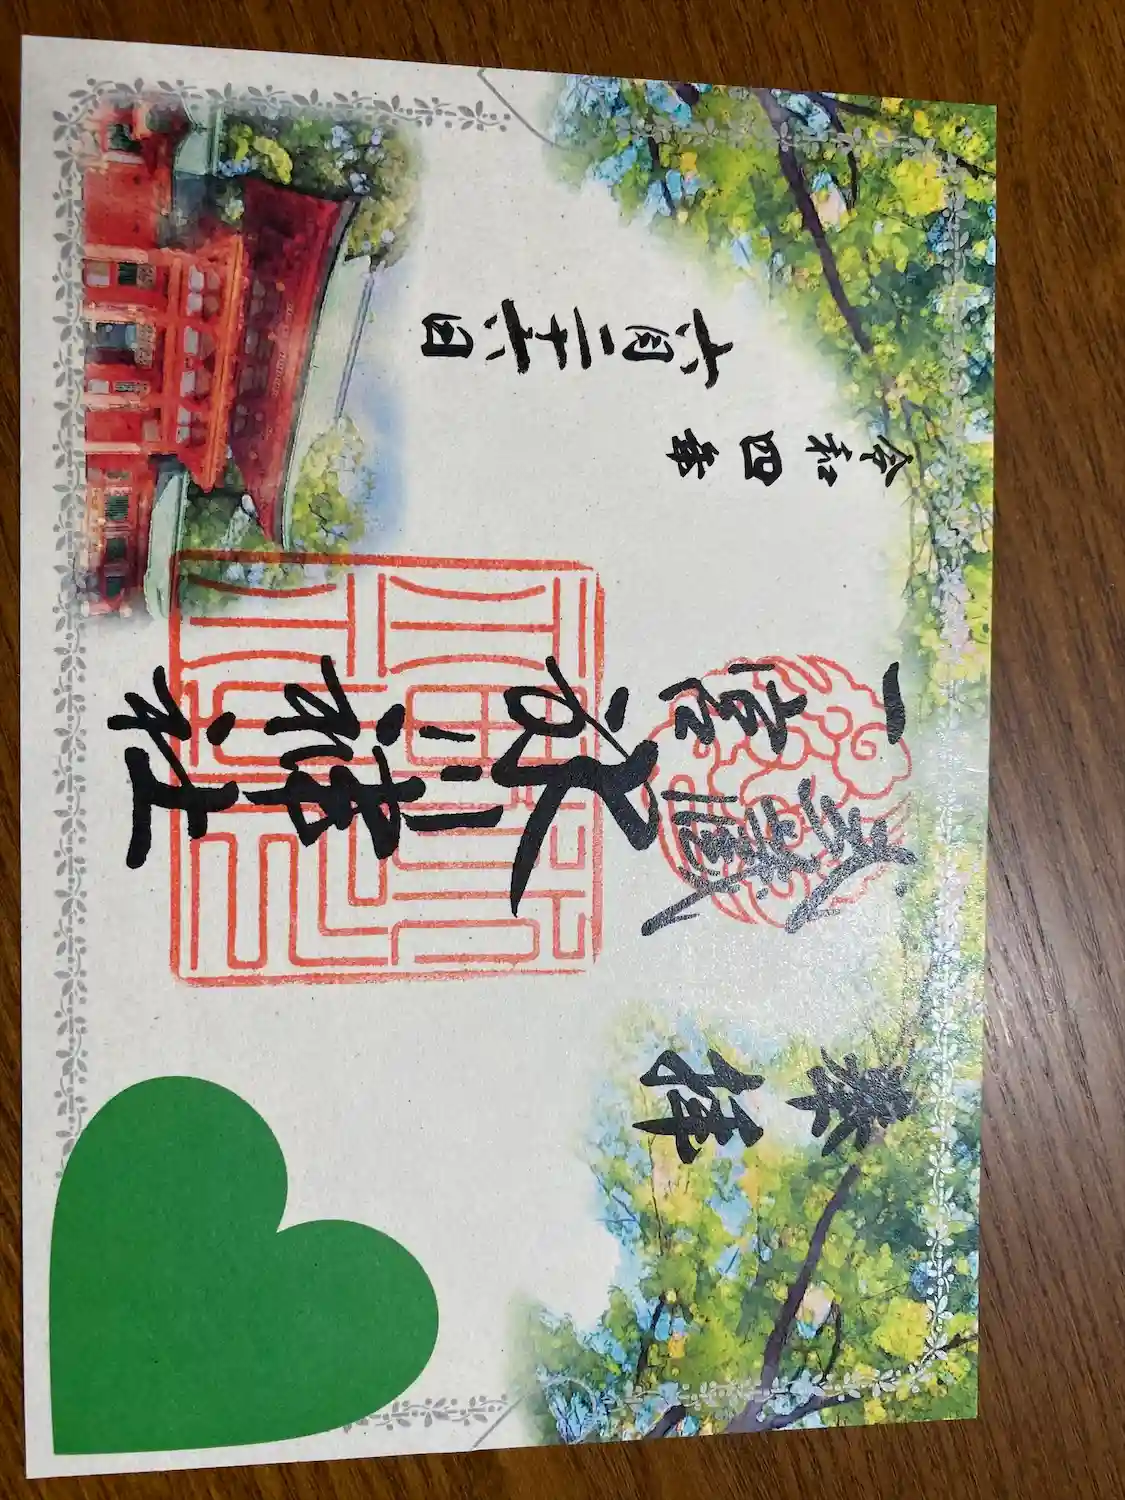 奉拝
武蔵
一宮
氷川神社
令和四年
六月二十六日